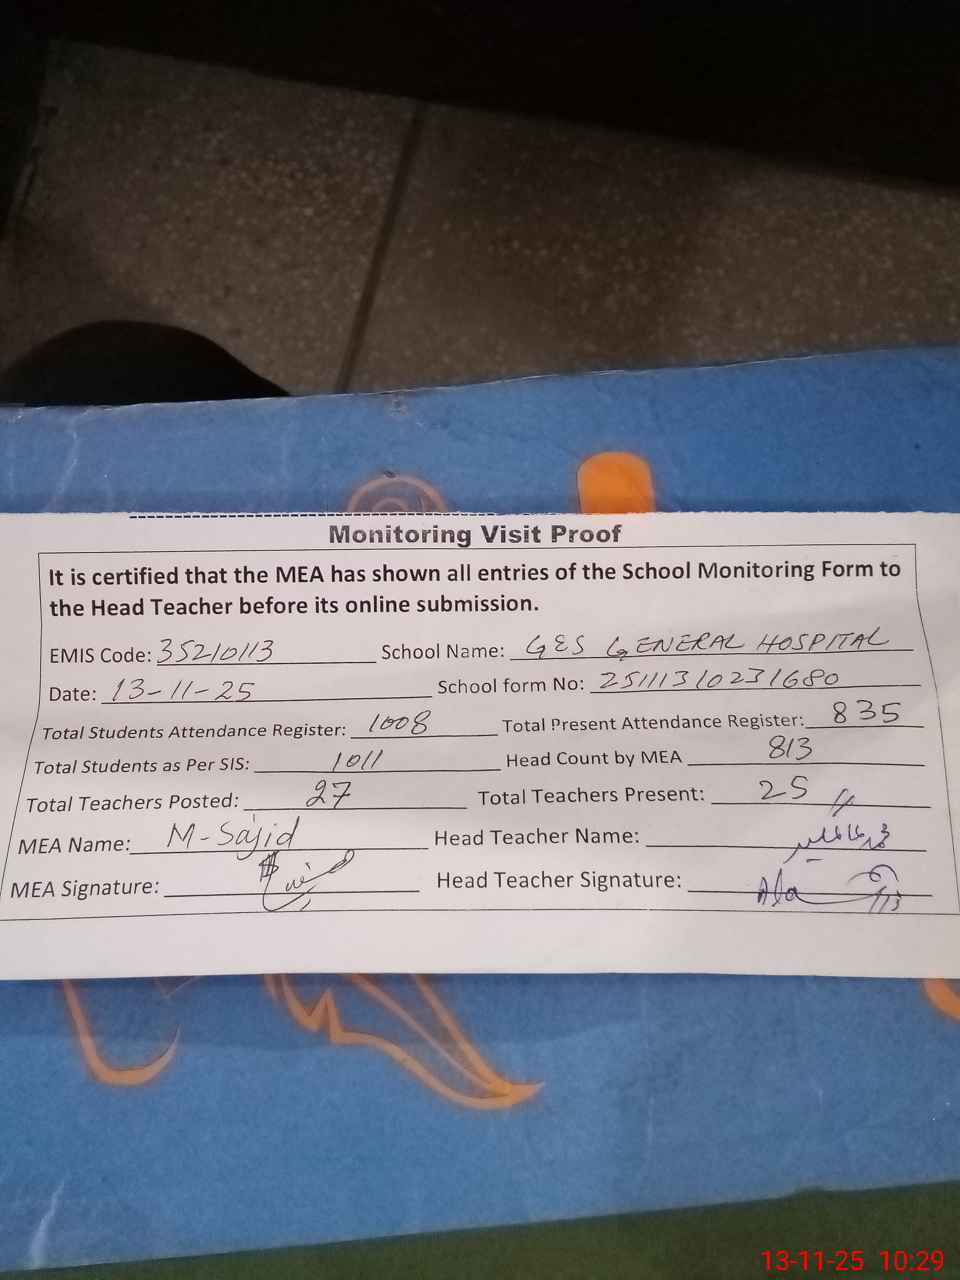 Monitoring Visit Proof
It is certified that the MEA has shown all entries of the School Monitoring Form to
the Head Teacher before its online submission.
EMIS Code: 35210113 School Name: GES GENERAL HOSPITAL
Date: 13-11-25 School form No: 25111310231680
Total Students Attendance Register: 1008 Total Present Attendance Register: 835
Total Students as Per SIS: 1011 Head Count by MEA 813
Total Teachers Posted: 27 Total Teachers Present: 25
MEA Name: M-Sajid Head Teacher Name:
MEA Signature: Head Teacher Signature:
13-11-25 10:29